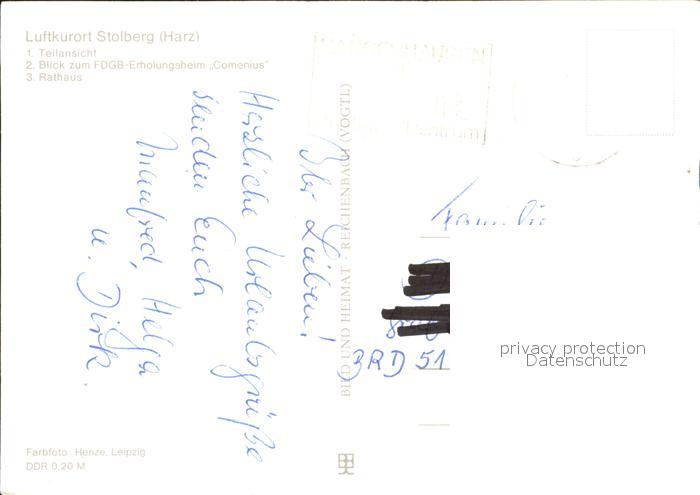 Luftkurort Stolberg (Harz)
1. Teilansicht
2. Blick zum FDGB-Erholungsheim „Comenius"
3. Rathaus
Ihr Lieben!
Herzliche Urlaubsgrüße
senden Euch
Manfred, Helga
u. Dirk.
BILD UND HEIMAT REICHENBACH (VOGTL)
Familie
BRD 51
privacy protection
Datenschutz
Farbfoto: Henze, Leipzig
DDR 0,20 M